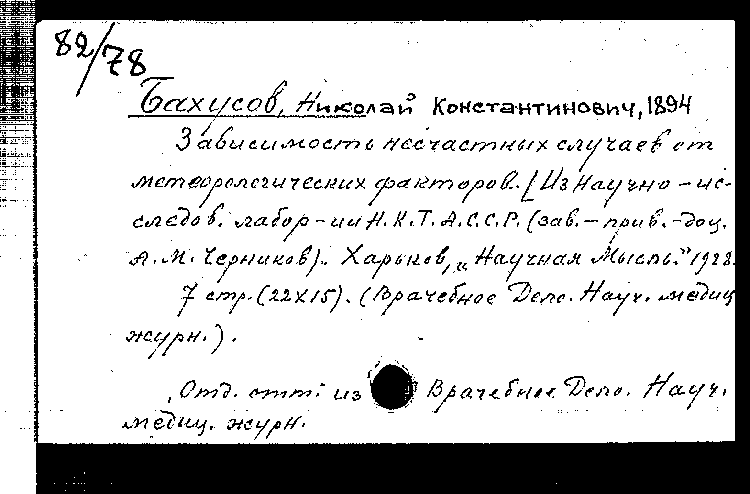 82/78
Бахусов, Николай Константинович, 1894
Зависимость несчастных случаев от
метеорологических факторов. [Из научно-ис-
следов. лабор-ии Н.К.Т.А.С.С.Р. (зав.-прив.-доц.
А.М. Черников). Харьков, „Научная Мысль." 1928.
7 стр. (22х15). (Врачебное Дело. Науч. медиц
журн.).
Отд. отт. из Врачебное Дело. Науч.
медиц. журн.